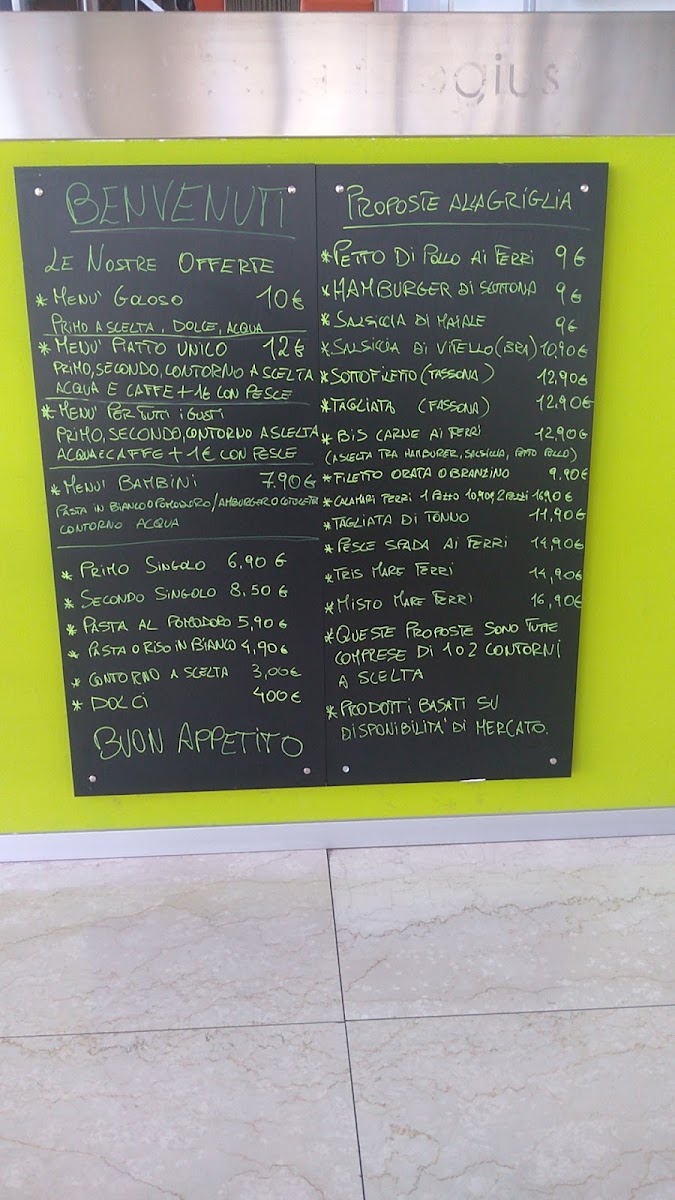 gius
BENVENUTI
LE NOSTRE OFFERTE
* MENU' GOLOSO 10€
PRIMO A SCELTA, DOLCE, ACQUA
* MENU' PIATTO UNICO 12€
PRIMO, SECONDO, CONTORNO A SCELTA
ACQUA E CAFFE + 1€ CON PESCE
* MENU' PER TUTTI I GUSTI
PRIMO, SECONDO, CONTORNO A SCELTA,
ACQUA E CAFFE + 1€ CON PESCE
* MENU' BAMBINI 7.90€
PASTA IN BIANCO O POMODORO/AMBURGER O COTOLETTA
CONTORNO ACQUA
* PRIMO SINGOLO 6,90 €
* SECONDO SINGOLO 8.50 €
* PASTA AL POMODORO 5,90 €
* PASTA O RISO IN BIANCO 4,90 €
* CONTORNO A SCELTA 3,00€
* DOLCI 400€
BUON APPETITO
PROPOSTE ALLA GRIGLIA
* PETTO DI POLLO AI FERRI 9€
* HAMBURGER DI SCOTTONA 9€
* SALSICCIA DI MAIALE 9€
* SALSICCIA DI VITELLO (BRA) 10,90€
* SOTTOFILETTO (FASSONA) 12,90€
* TAGLIATA (FASSONA) 12,90€
* BIS CARNE AI FERRI 12,90€
(A SCELTA TRA HAMBURER, SALSICCIA, PETTO POLLO)
* FILETTO ORATA O BRANZINO 9.90€
* CALAMARI FERRI 1 PEZZO 10,90, 2 PEZZI 16,90 €
* TAGLIATA DI TONNO 11,90€
* PESCE SPADA AI FERRI 14,90€
* TRIS MARE FERRI 14,90€
* MISTO MARE FERRI 16,90€
* QUESTE PROPOSTE SONO TUTTE
COMPRESE DI 1 O 2 CONTORNI
A SCELTA
* PRODOTTI BASATI SU
DISPONIBILITA' DI MERCATO.